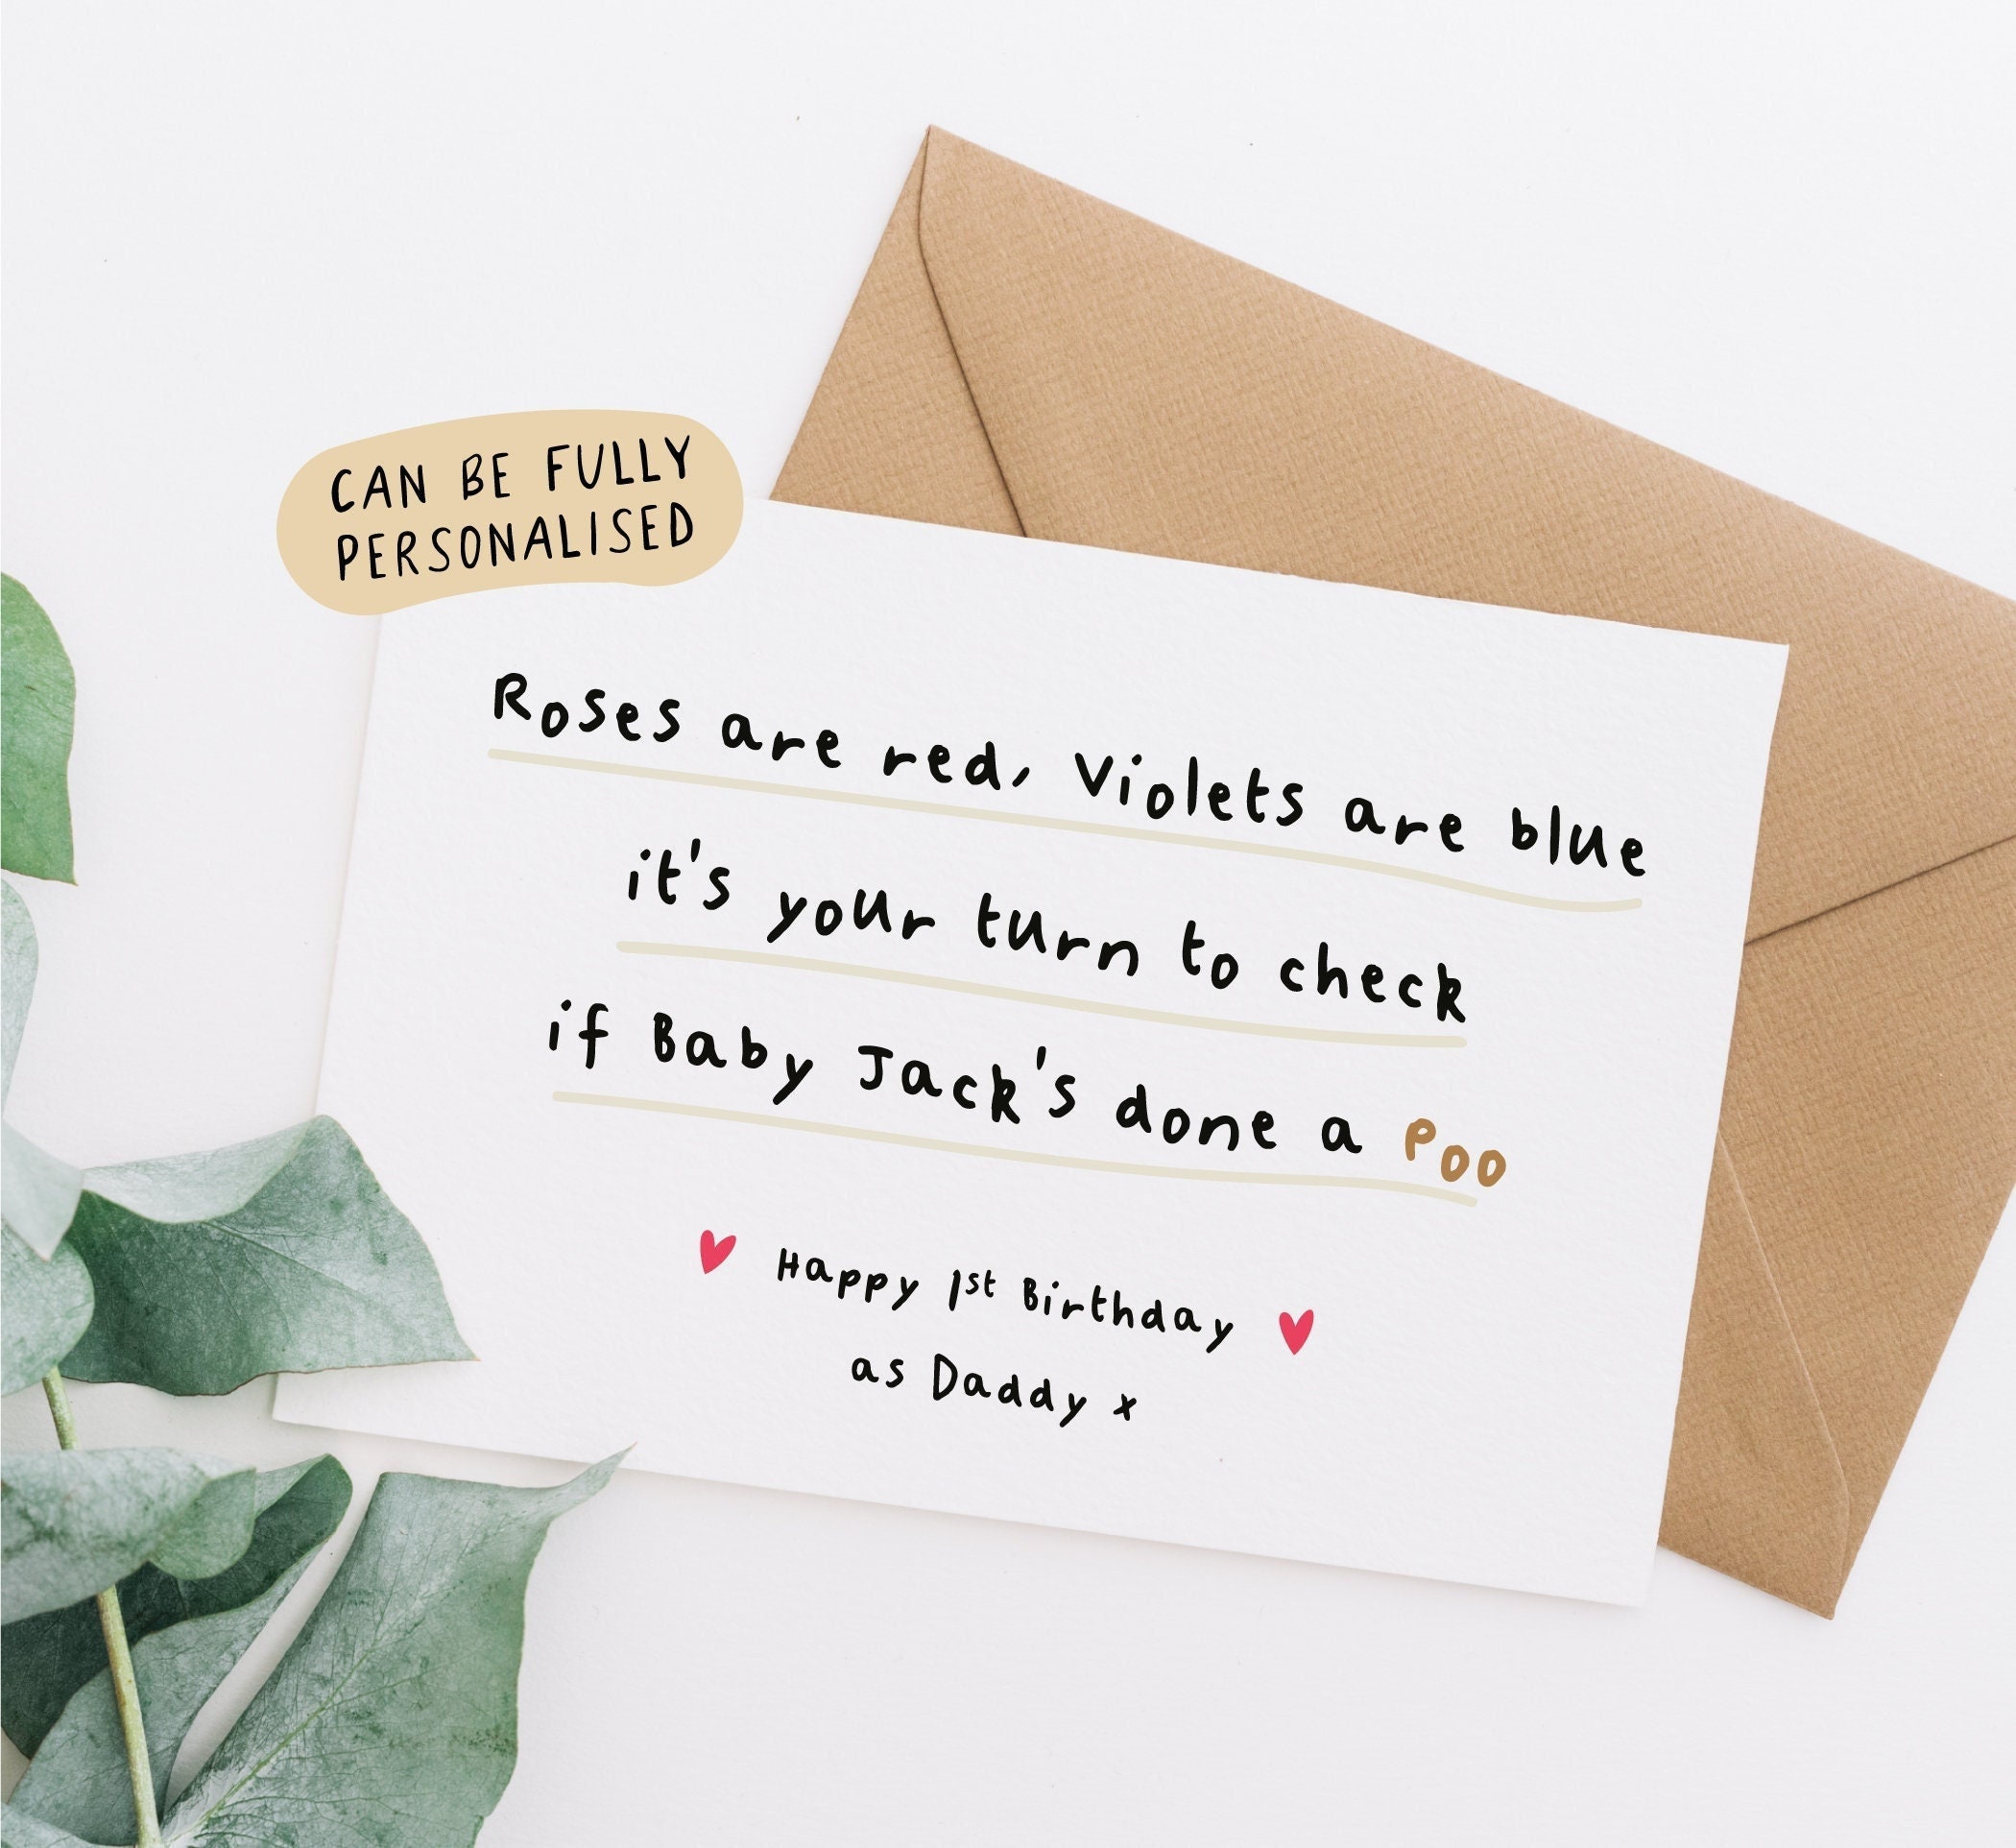 CAN BE FULLY
PERSONALISED
Roses are red, Violets are blue
it's your turn to check
if Baby Jack's done a Poo
Happy 1st Birthday
as Daddy x